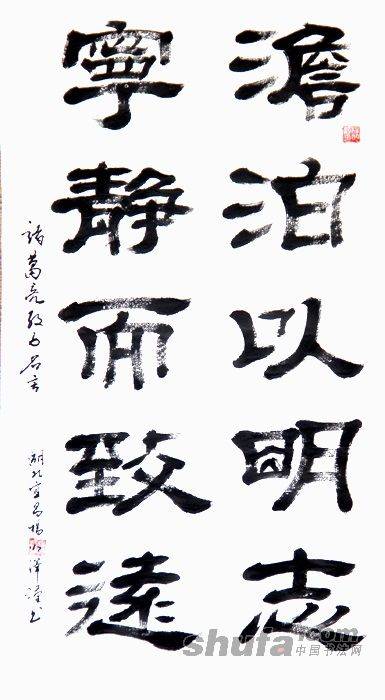 澹泊以明志
寧静而致遠
諸葛亮教子名言
湖北宜昌楊
shufa1.com
中国书法网